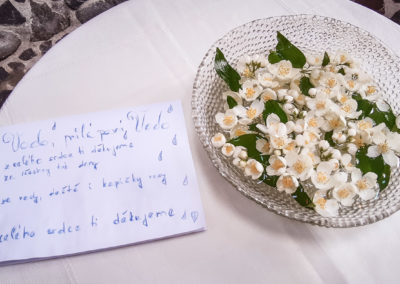 Vodo, milá Vodo
z celého srdce ti děkujeme
za všechny tvé dary
za vody, deště i kapičky rosy
z celého srdce ti děkujeme